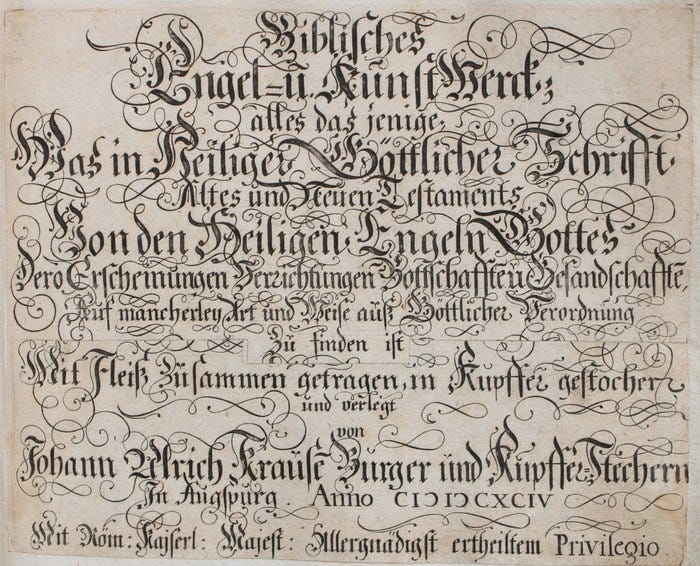 Biblisches
Engel- u. Kunst Werck;
alles das jenige,
Was in Heiliger Göttlicher Schrifft
Altes und Neuen Testaments
Von den Heiligen Engeln Gottes
dero Erscheinungen Verrichtungen Bottschafften u Gesandschafftē,
Auf mancherley Art und Weise auß Göttlicher Verordnung
Zu finden ist
Mit Fleiß Zusammen getragen, in Kupffer gestochen
und verlegt
von
Johann Ulrich Krauße Burger und Kupffer-Stechern
In Augspurg. Anno CIↃ IↃCXCIV
Mit Röm: Kayserl: Majest: Allergnädigst ertheiltem Privilegio.